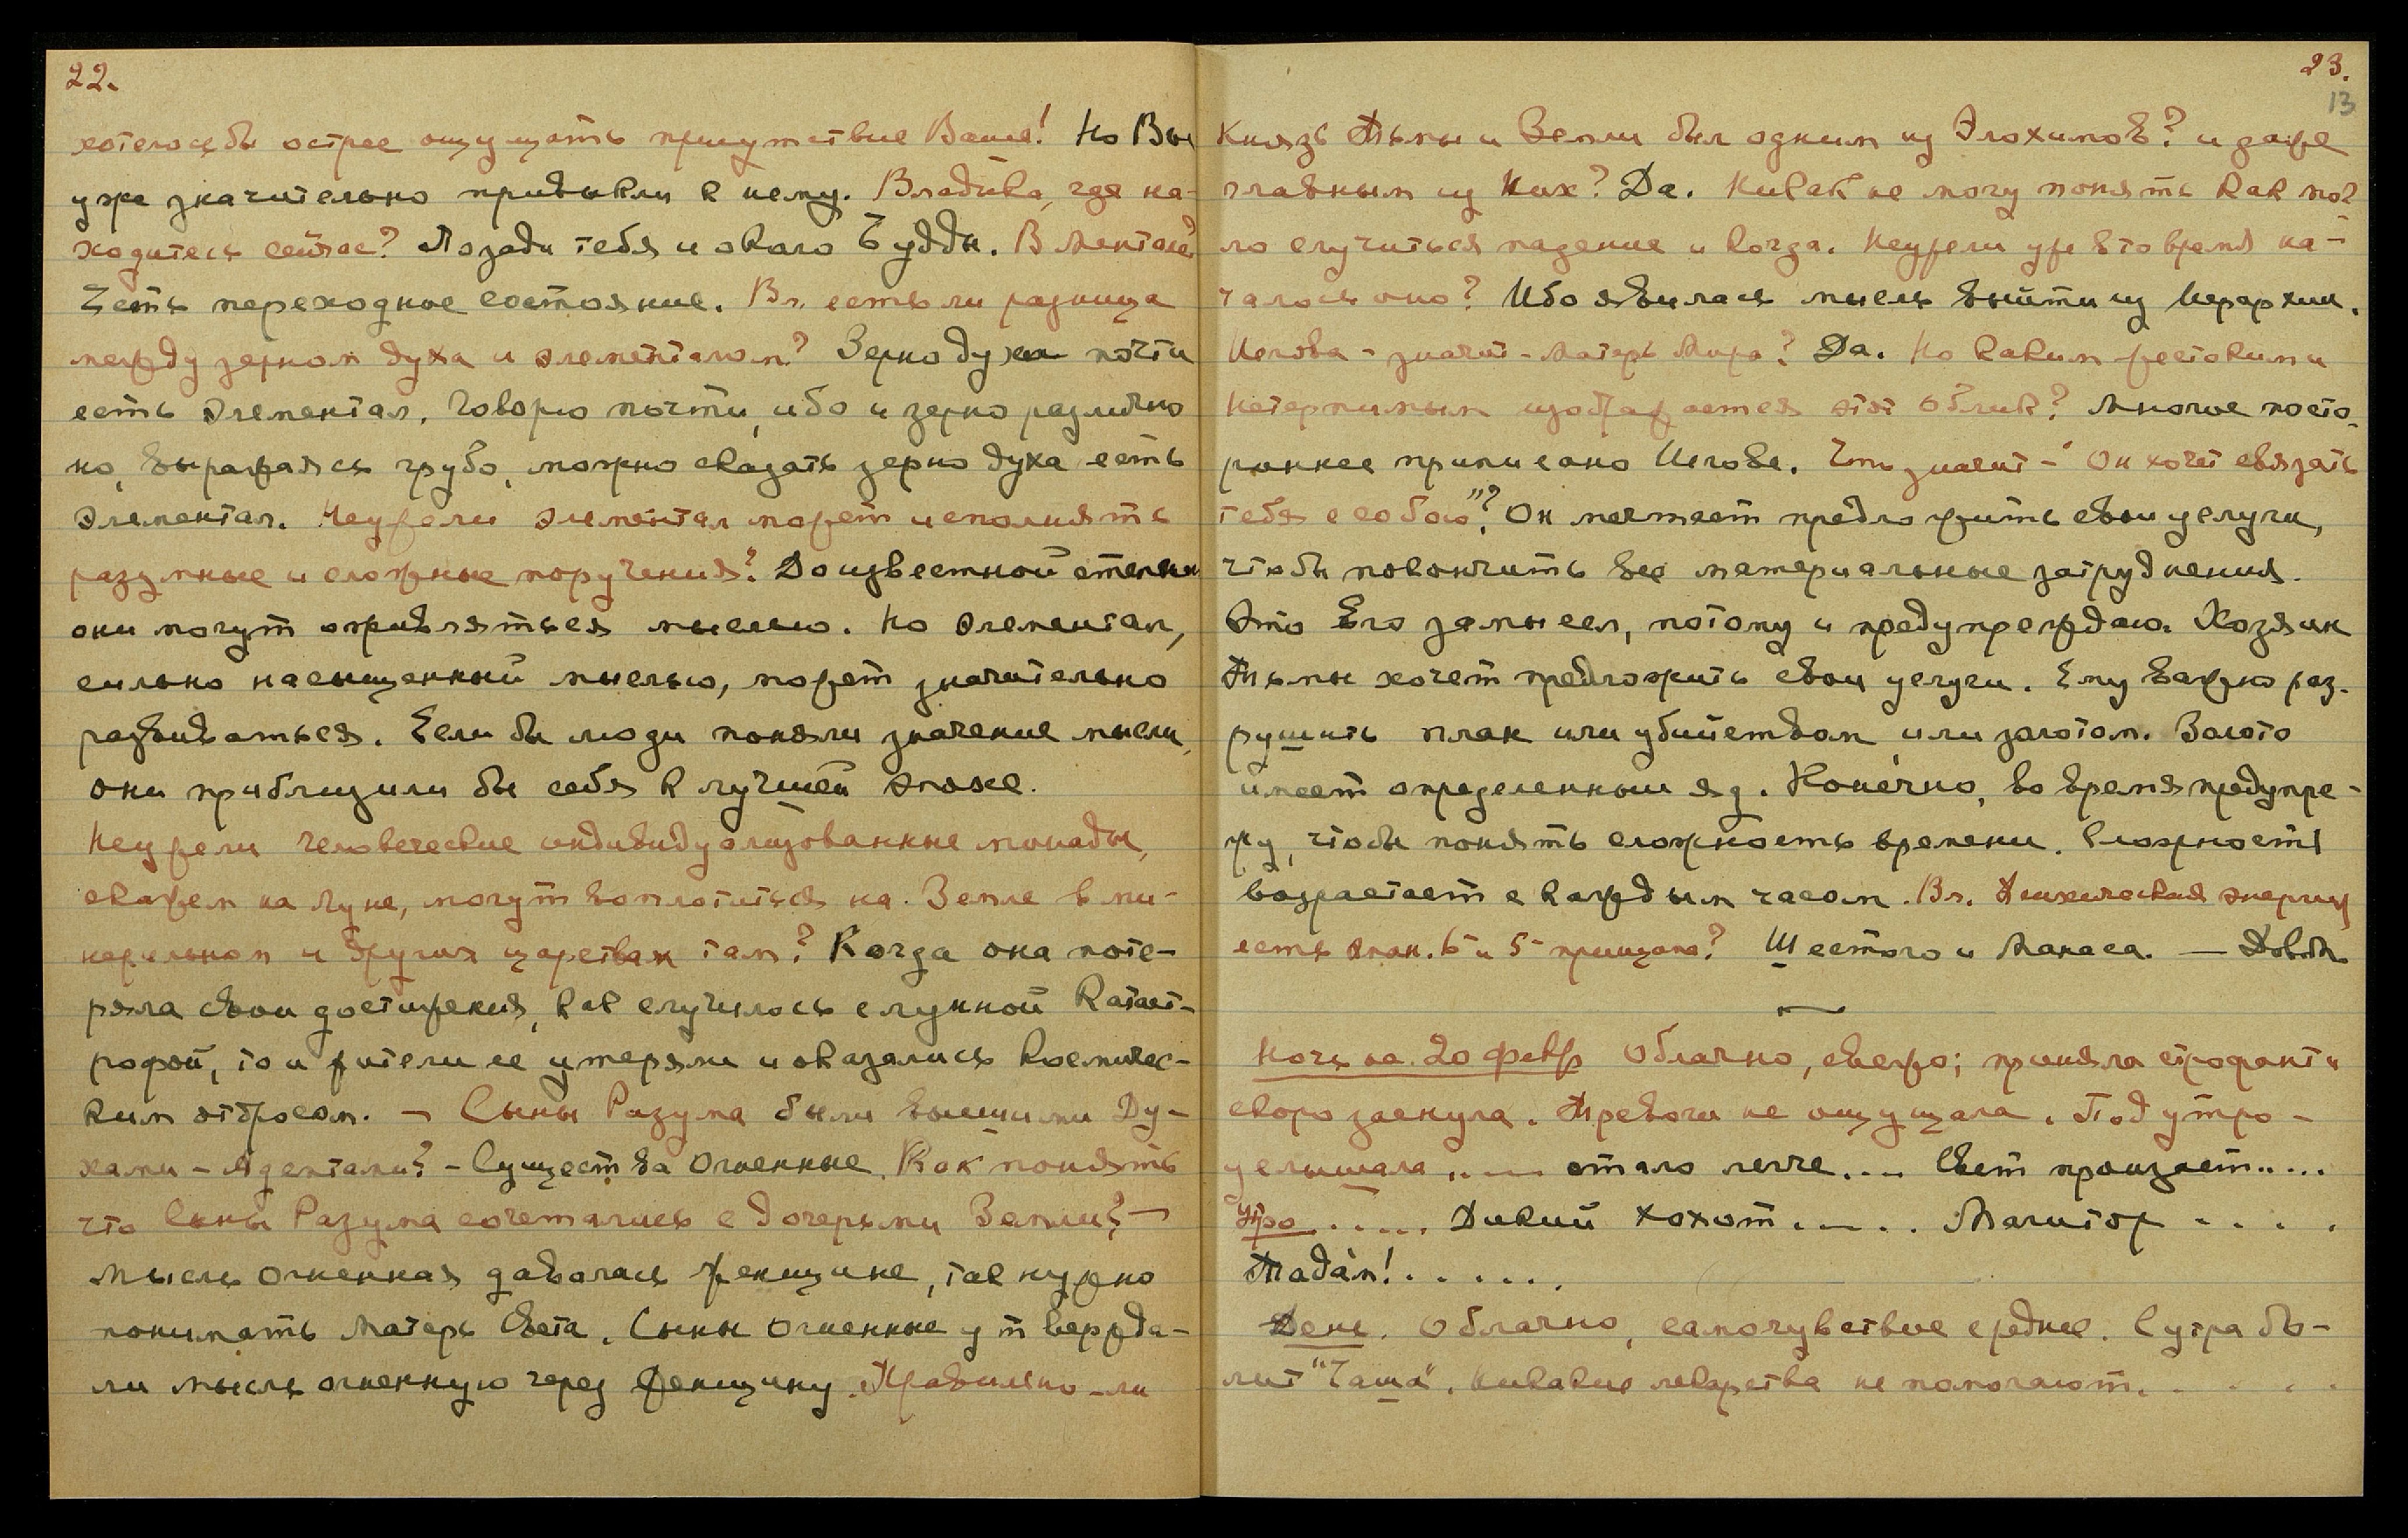 22.
хотелось бы острее ощущать присутствие Ваше! Но Вы
уже значительно привыкли к нему. Владыка, где на-
ходитесь сейчас? Позади тебя и около Будды. В Ментале?
Есть переходное состояние. Вл. есть ли разница
между зерном духа и элементалом? Зерно духа почти
есть элементал. Говорю почти, ибо и зерно различно
но, выражаясь грубо, можно сказать зерно духа есть
элементал. Неужели элементал может исполнять
разумные и сложные поручения? До известной степени
они могут оживляться мыслью. Но элементал,
сильно насыщенный мыслью, может значительно
развиваться. Если бы люди поняли значение мысли,
они приблизили бы себя к лучшей эпохе.
Неужели человеческие индивидуализованные монады,
скажем на Луне, могут воплотиться на Земле в ми-
неральном и других царствах там? Когда она поте-
ряла свои достижения, как случилось с лунной катаст-
рофой, то и жители ее утеряли и оказались космичес-
ким отбросом. – Сыны Разума были высшими Ду-
хами – Адептами? – Существа Огненные. Как понять
что Сыны Разума сочетались с дочерьми Земли? –
Мысль огненная давалась женщине, так нужно
понимать Матерь Света. Сыны Огненные утвержда-
ли мысль огненную через женщину. Правильно-ли
23.
13
Князь Тьмы и Земли был одним из Элохимов? и даже
главным из Них? Да. Никак не могу понять как мог-
ло случиться падение и когда. Неужели уже в то время на-
чалось оно? Ибо явилась мысль выйти из Иерархии.
Иегова – значит – Матерь Мира? Да. Но каким жестоким и
нетерпимым изображается этот облик? Многое посто-
роннее приписано Иегове. Что значит – "Он хочет связать
тебя с собою"? Он мечтает предложить свои услуги,
чтобы покончить все материальные затруднения.
Это Его замысел, потому и предупреждаю. Хозяин
Тьмы хочет предложить свои услуги. Ему важно раз-
рушить план или убийством или золотом. Золото
имеет определенный яд. Конечно, во время предупре-
жу, чтобы понять сложность времени. Сложность
возрастает с каждым часом. Вл. Психическая энергия
есть эман. 6– и 5– принципа? Шестого и Манаса. — Довл.
Ночь на 20 февр Облачно, свежо; приняла строфант и
скоро заснула. Тревоги не ощущала. Под утро –
услышала .... стало легче.... Свет пронзает.....
Утро..... Дикий хохот..... Магнитор ....
Тадáм!......
День. Облачно, самочувствие среднее. С утра бо-
лит "Чаша". Никакие лекарства не помогают.....